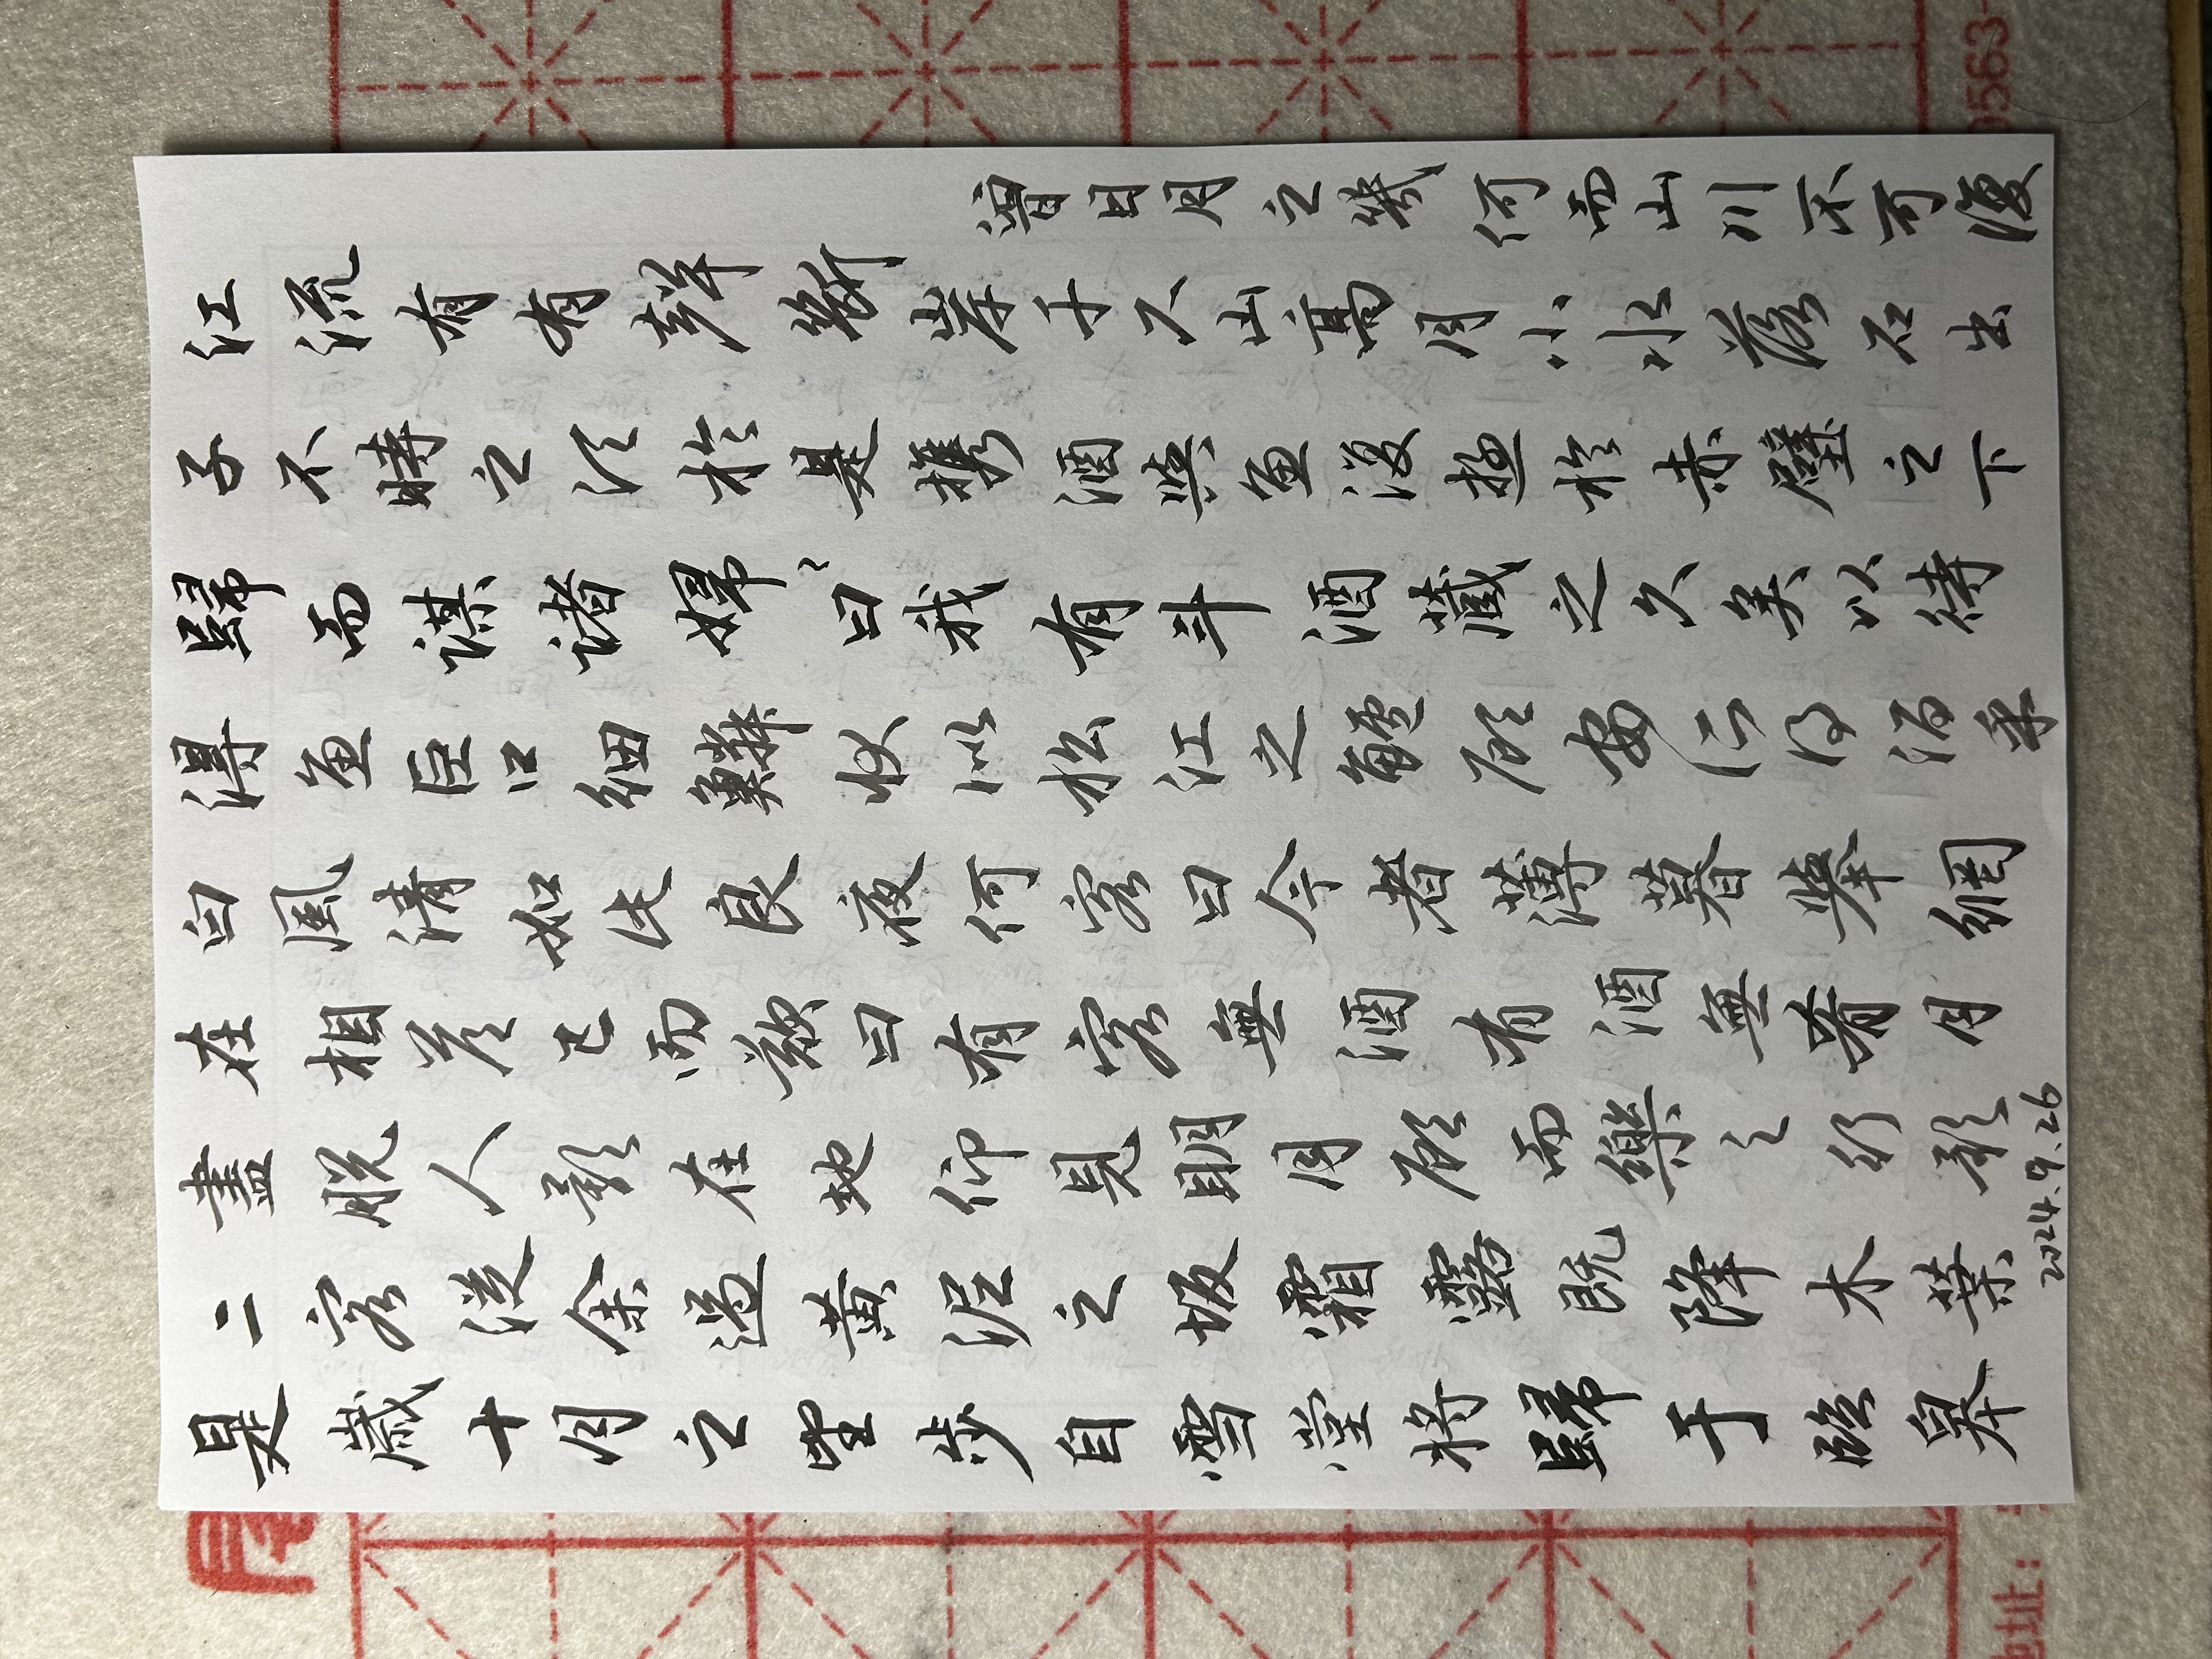 是歲十月之望步自雪堂將歸于臨皋
二客從余過黃泥之坂霜露既降木葉
盡脫人影在地仰見明月顧而樂之行歌
在相答已而歎曰有客無酒有酒無肴月
白風清如此良夜何客曰今者薄暮舉網
得魚巨口細鱗狀似松江之鱸顧安所得酒乎
歸而謀諸婦〻曰我有斗酒藏之久矣以待
子不時之須於是攜酒與魚復遊於赤壁之下
江流有有聲斷岸千尺山高月小水落石出
曾日月之幾何而山川不可復
2024.9.26
地址:
0563-